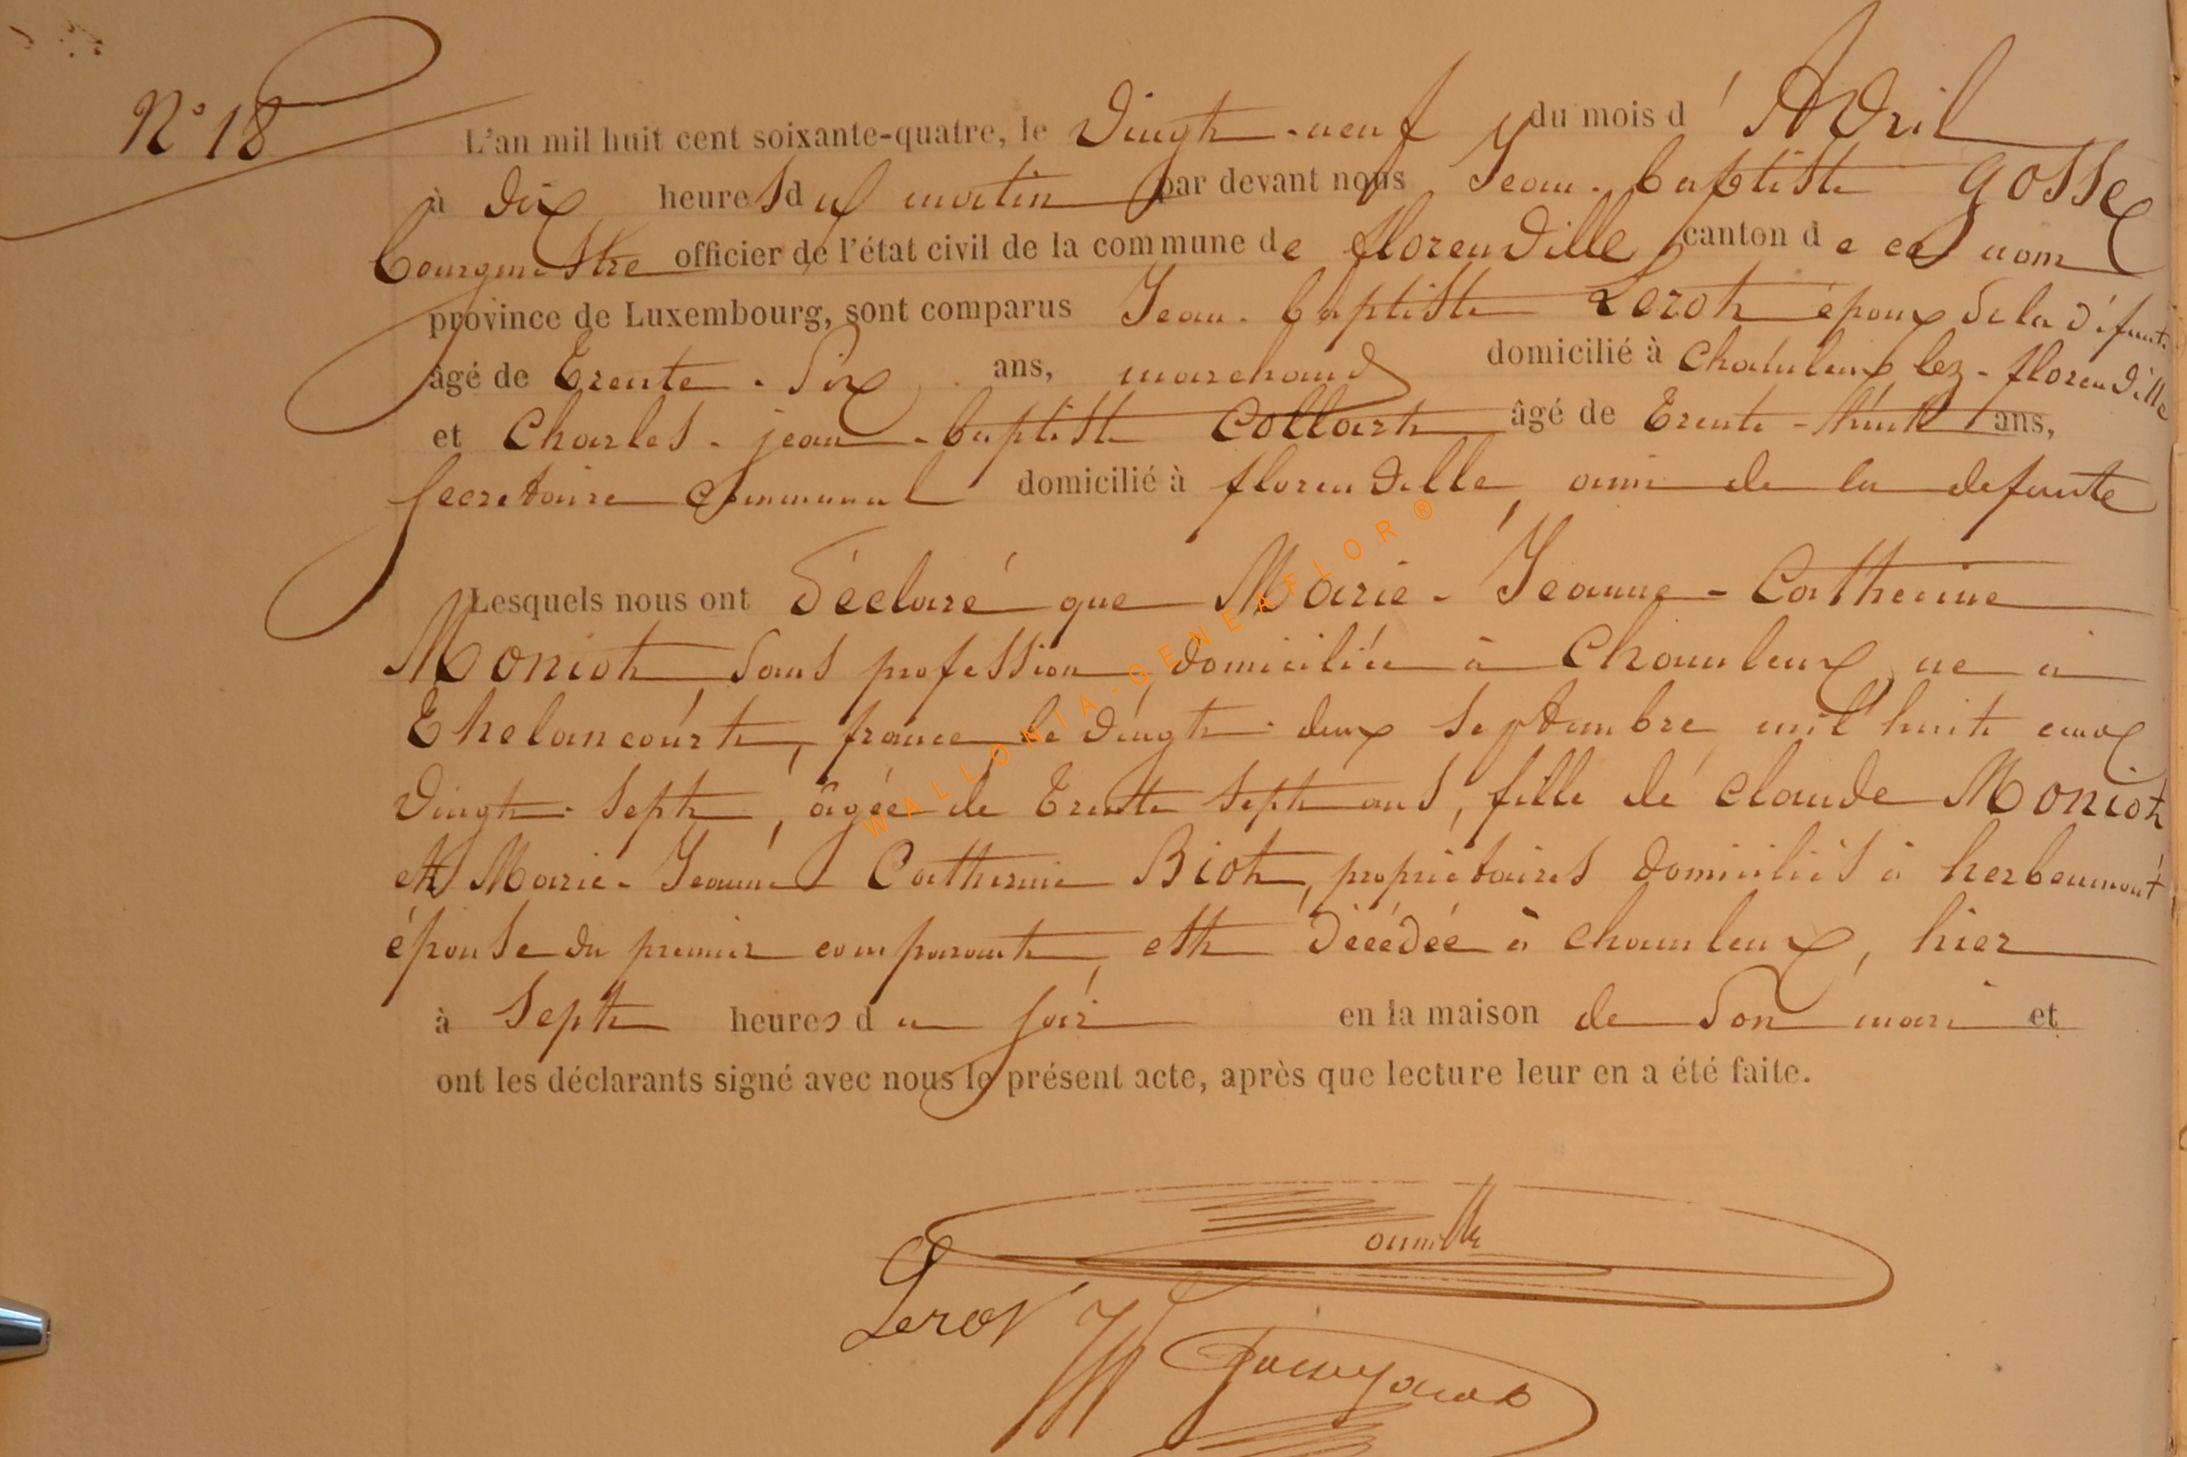 N° 18
L'an mil huit cent soixante-quatre, le vingt-neuf du mois d'Avril
à dix heures du matin par devant nous Jean-baptiste Gosse
bourgmestre officier de l'état civil de la commune de florenville canton de ce nom
province de Luxembourg, sont comparus Jean-baptiste Lerot époux de la défunte
âgé de trente-six ans, marchand domicilié à lez-florenville
et Charles-jean-baptiste Collart âgé de trente-huit ans,
secretaire communal domicilié à florenville, ami de la defunte
Lesquels nous ont déclaré que Marie-Jeanne-Catherine
Moniot, sans profession, domiciliée à Chameleux, ne à
Thelancourt, france le vingt-deux septembre mil huit cent
vingt-sept, âgée de trente sept ans, fille de claude Moniot
et Marie-Jeanne Catherine Biot, propriétaires domiciliés à herbeumont
épouse du premier comparant, est décédée à chameleux, hier
à sept heures du soir en la maison de son mari et
ont les déclarants signé avec nous le présent acte, après que lecture leur en a été faite.
Lerot
WALLONIA-GENEAFLOR®